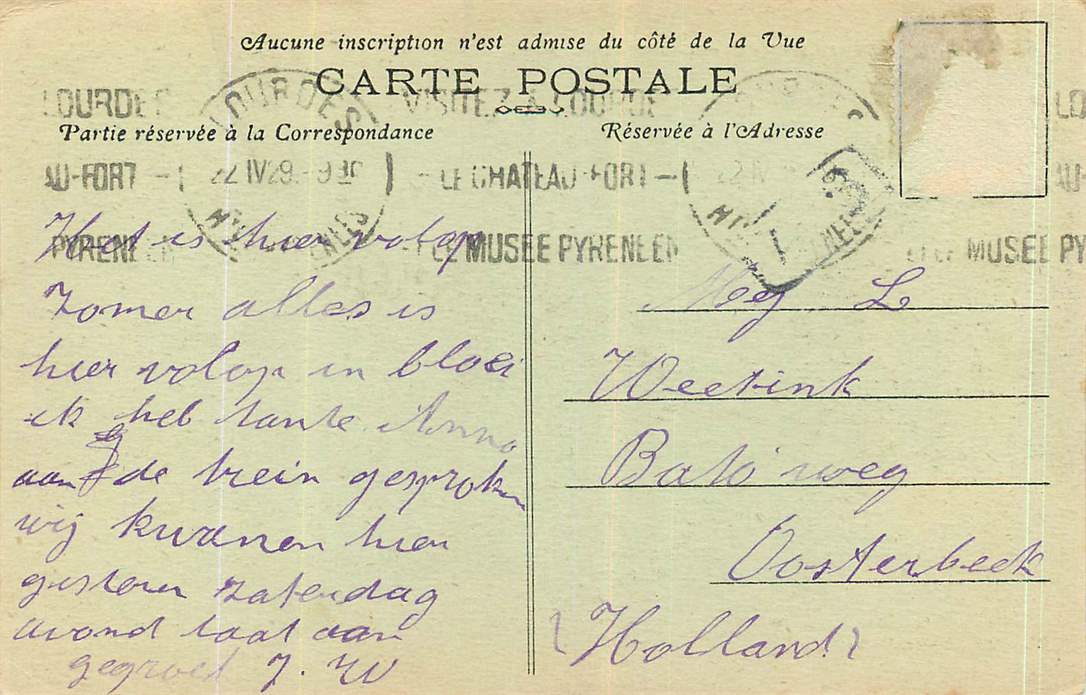 Aucune inscription n'est admise du côté de la Vue
CARTE POSTALE
Partie réservée à la Correspondance
Réservée à l'Adresse
LOURDES
VISITEZ A LOURDES
LE CHATEAU-FORT
ET LE MUSEE PYRENEEN
22 IV 29
Het is hier volop
Zomer alles is
hier volop in bloei
ik heb tante Anna
aan de trein gesproken
wij kwamen hier
gisteren zaterdag
avond laat aan
gegroet J. W
Mej L
Weetink
Bato weg
Oosterbeek
(Holland)